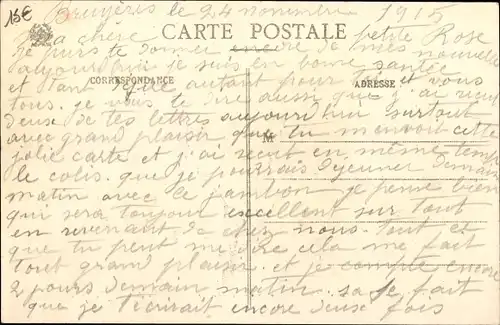 15€
Bruyères le 24 novembre 1915
CARTE POSTALE
Ma chère petite Rose
Je puis te donner encore de mes nouvelles
aujourd'hui je suis en bonne santée
CORRESPONDANCE
ADRESSE
et tant autant pour toi et vous
tous. je vous dire aussi que j'ai recut
deuse de tes lettres aujourd'hui surtout
avec grand plaisir que tu m'envoit cette
M
jolie carte et j'ai recut en même temp
le colis. que je pourrais déjeuner demain
matin avec le jambon je pense bien
qui sera toujour excellent sur tout
en revenant de chez nous. Tout et
que tu peut me dire cela me fait
tout grand plaisir. et je compte encore
2 jours demain matin. sa fait
que je t'écrirait encore deuse fois